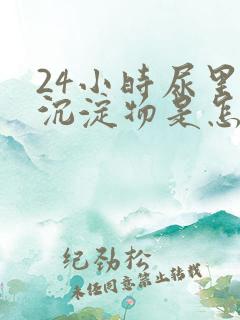 24小时尿里
沉淀物是怎
纪劲松
未经同意禁止转载